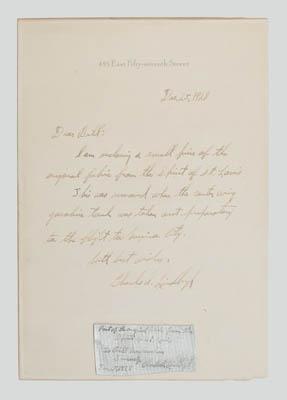 435 East Fifty-seventh Street
Dec. 25, 1928
Dear Bill:
I am enclosing a small piece of the
original fabric from the Spirit of St. Louis
This was removed when the center wing
gasoline tank was taken out preparatory
to the flight to Mexico City.
With best wishes,
Charles A. Lindbergh
Part of the original fabric from the
Spirit of St. Louis
To Bill